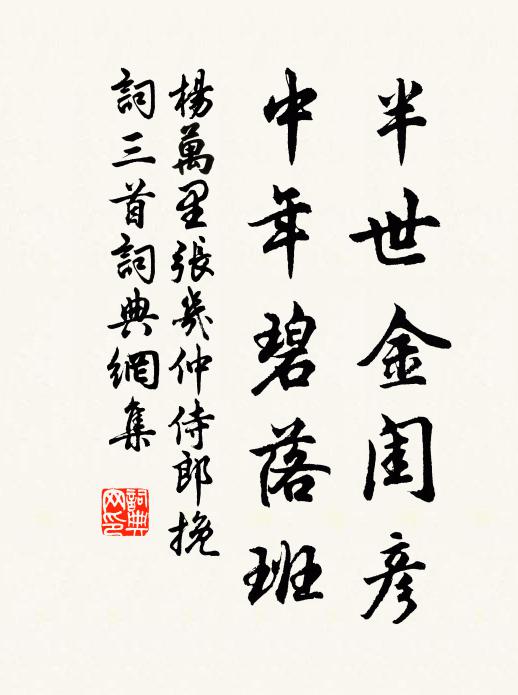 半世金閨彥
中年碧落班
楊萬里張幾仲侍郎挽
詞三首詞典網集
詞典网印